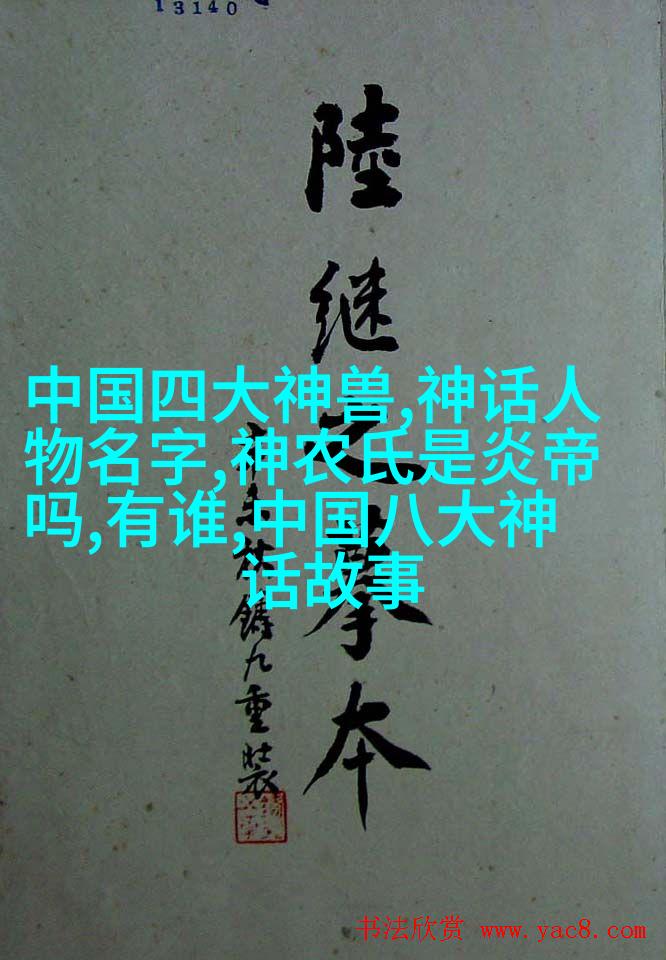 13140
陸继之摹本
中国四大神兽,神话人
物名字,神农氏是炎帝
吗,有谁,中国八大神
话故事
九重裝
书法欣赏 www.yac8.com